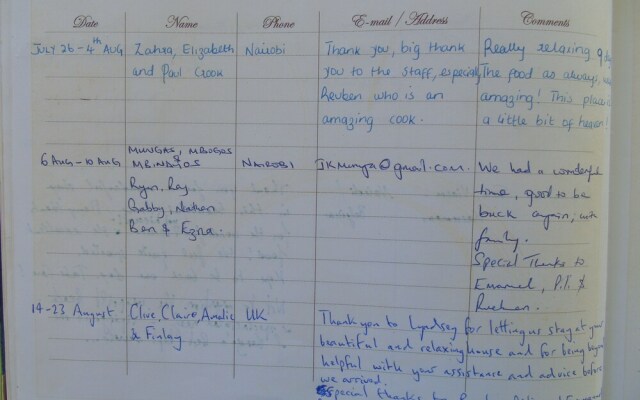 Date Name Phone E-mail / Address Comments
JULY 26 - 4th AUG Zahra, Elizabeth Nairobi Thank you, big thank Really relaxing
and Paul Cook you to the staff, especially The food as always,
Reuben who is an amazing! This place
amazing cook. a little bit of heaven!
6 AUG - 10 AUG NAIROBI We had a wonderful
Ryan, Ray time, good to be
Gabby, Nathan back again, with
Ben & Ezra. family.
Special Thanks to
Emanuel, P.T. &
14-23 August Clive, Claire, Amelie UK Thank you to Lyndsey for letting us stay at your
& Finlay beautiful and relaxing house and for being beyond
helpful with your assistance and advice before
we arrived.
special thanks to